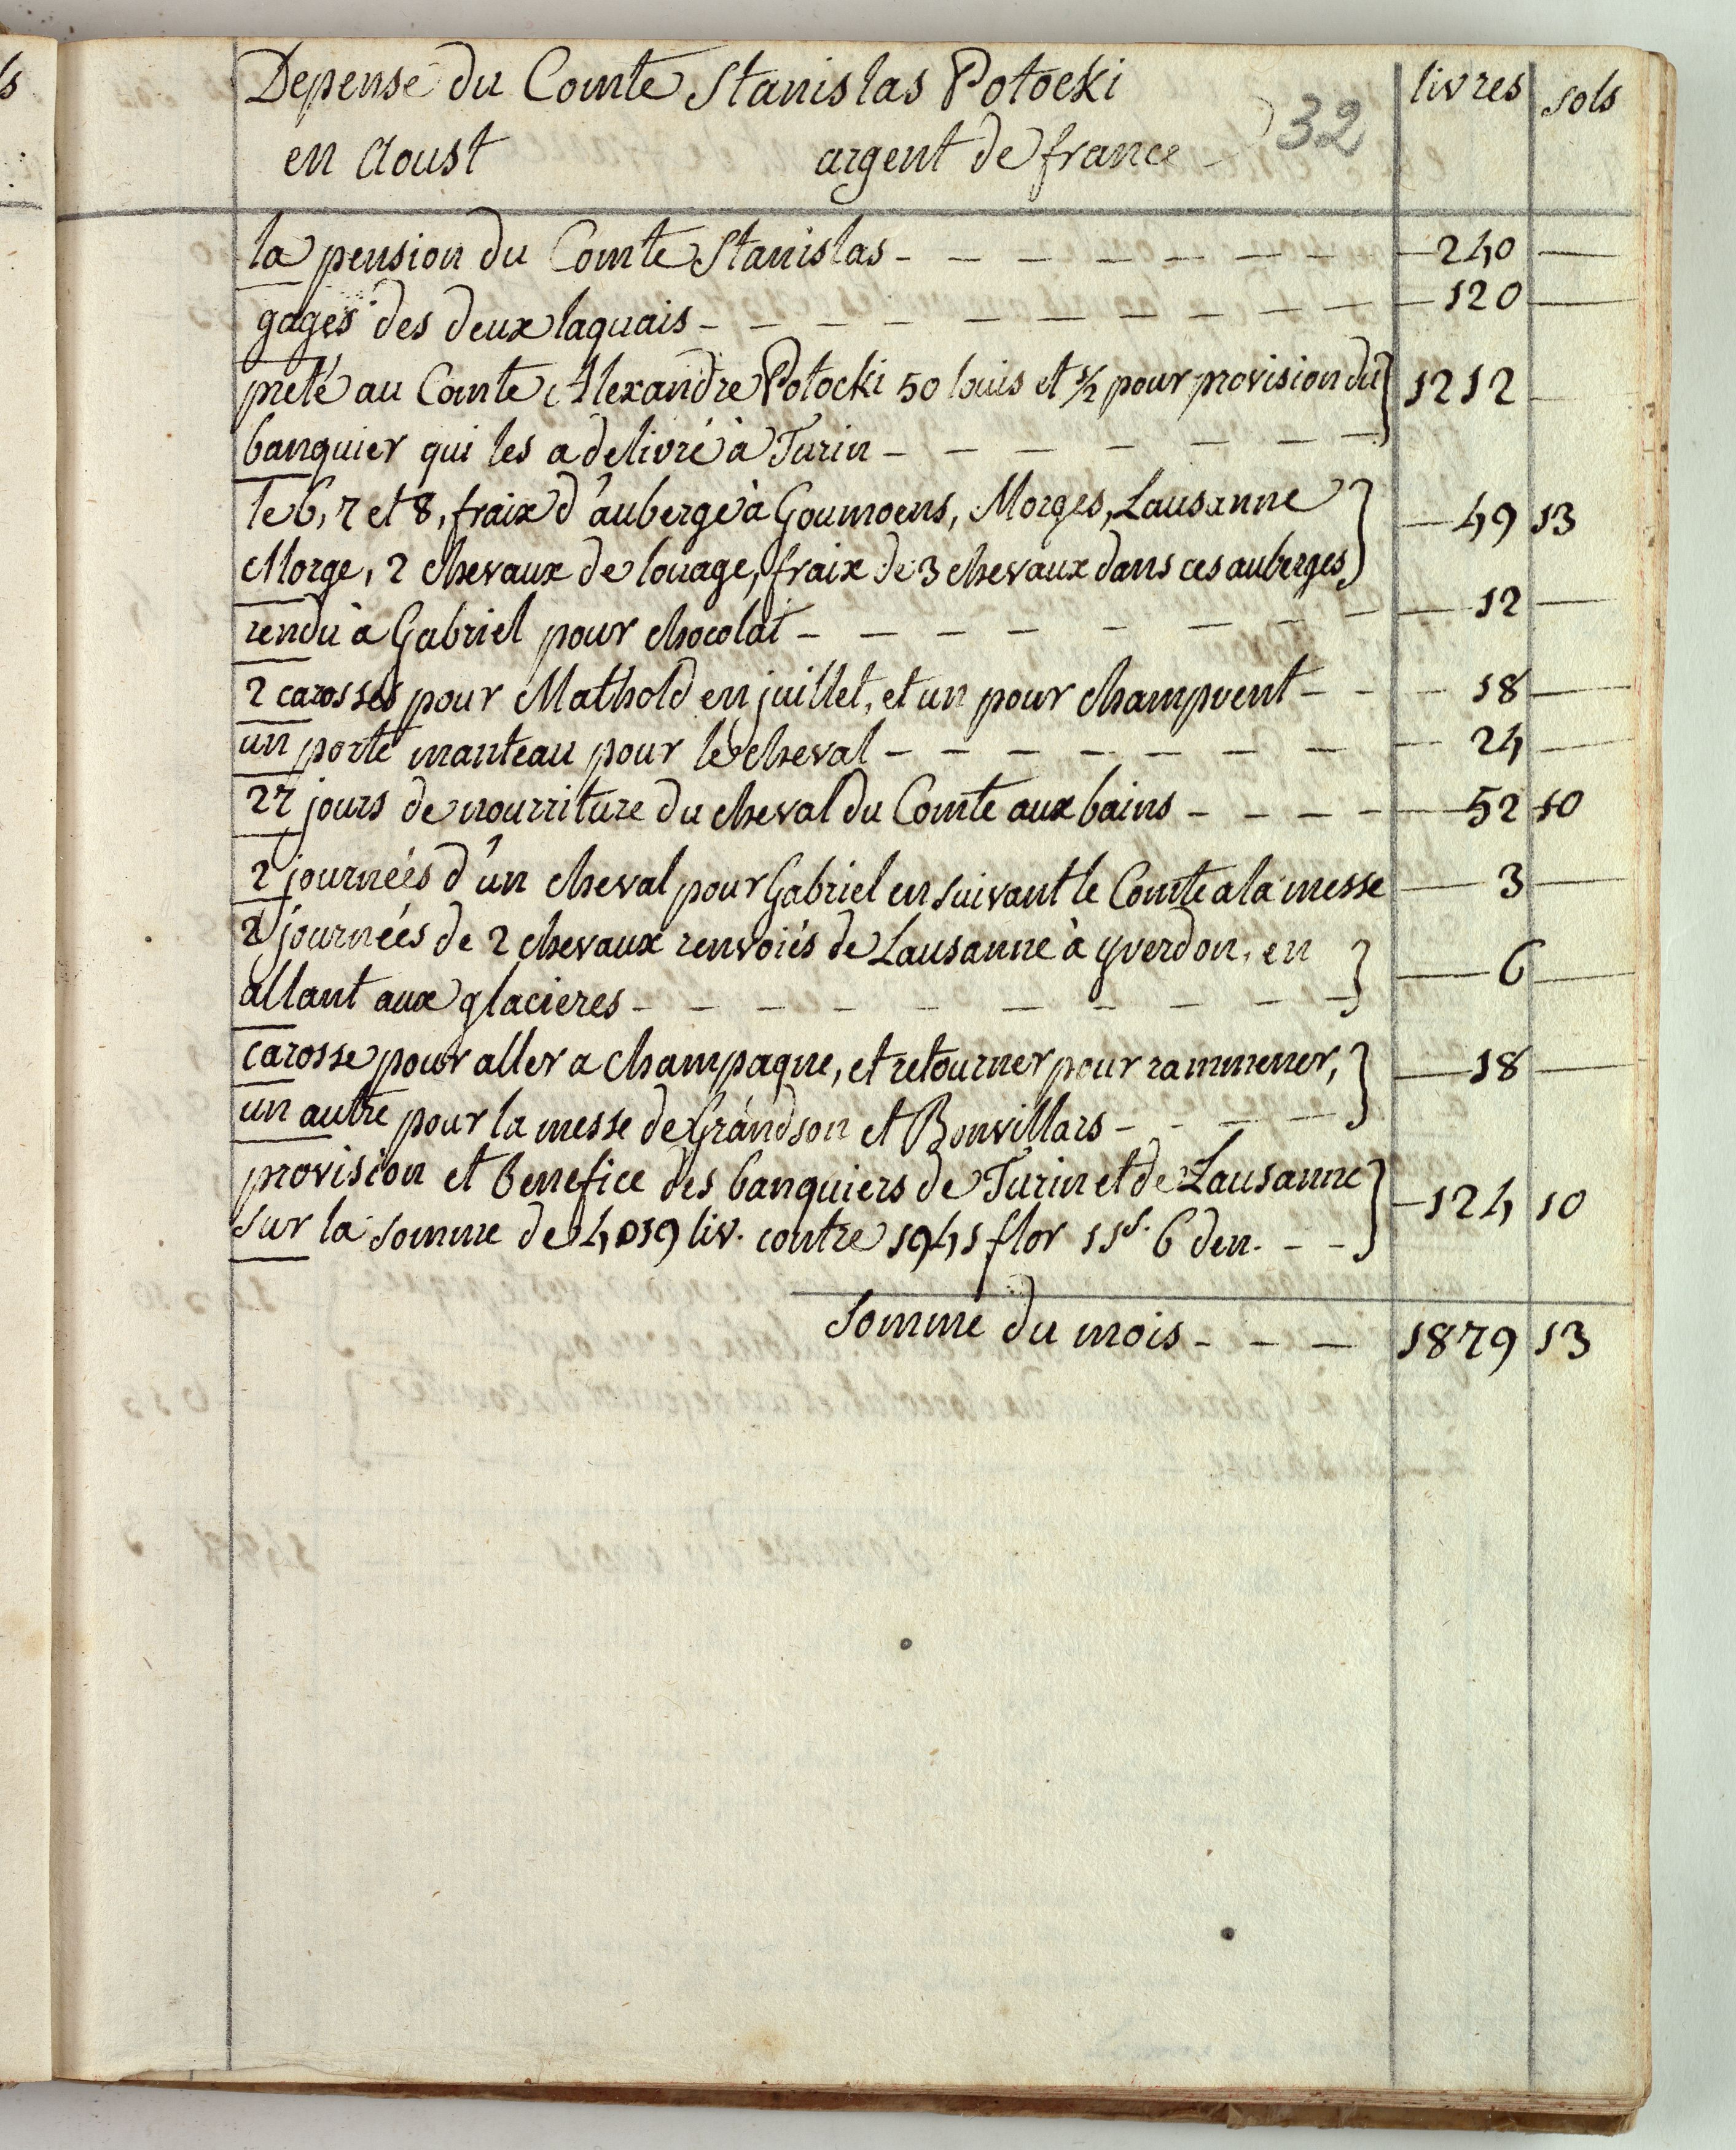 ls
Depense du Comte Stanislas Potocki
livres
sols
32
en Aoust argent de france
la pension du Comte Stanislas - - - - - - - - 240
gages des deux laquais - - - - - - - - - - 120
preté au Comte Alexandre Potocki 50 louis et 1/2 pour provision du } 1212
banquier qui les a delivré à Turin - - - - - -
le 6, 7 et 8, fraix d'auberge à Goumoens, Morges, Lausanne } 49 13
Morge, 2 chevaux de louage, fraix de 3 chevaux dans ces auberges
rendu à Gabriel pour chocolat - - - - - - - - 12
2 carosses pour Mathold en juillet, et un pour champvent - - 18
un porte manteau pour le cheval - - - - - - - 24
27 jours de nourriture du cheval du Comte aux bains - - - - 52 10
2 journées d'un cheval pour Gabriel en suivant le Comte a la messe 3
2 journées de 2 chevaux renvoiés de Lausanne à yverdon, en } 6
allant aux glacieres - - - - - - - - - -
carosse pour aller a champagne, et retourner pour rammener, } 18
un autre pour la messe de Grandson et Bonvillars - - - -
provision et benefice des banquiers de Turin et de Lausanne } 124 10
sur la somme de 4019 liv. contre 1941 flor 11 s. 6 den. - -
Somme du mois - - - 1879 13